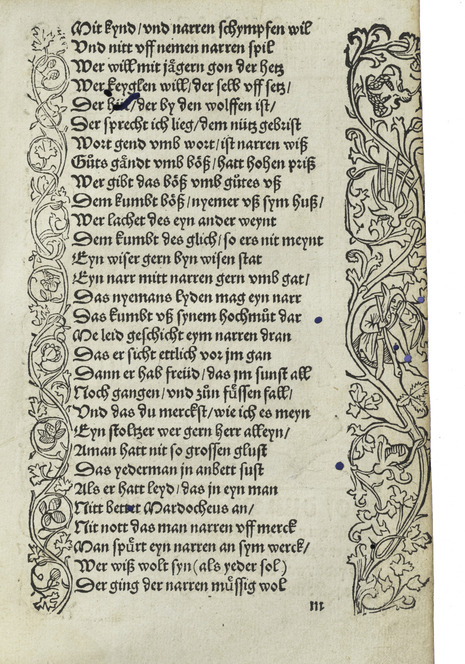 Mit kynd/vnd narren schympfen wil
Vnd nitt vff nemen narren spil
Wer will mit jägern gon der hetz
Wer keyglen will/der selb vff setz/
Der /der by den wolffen ist/
Der sprecht ich lieg/dem nütz gebrist
Wort gend vmb wort/ist narren wiß
Gůts gändt vmb böß/hatt hohen priß
Wer gibt das böß vmb gůtes vß
Dem kumbt böß/nyemer vß sym huß/
Wer lachet des eyn ander weynt
Dem kumbt des glich/so ers nit meynt
Eyn wiser gern byn wisen stat
Eyn narr mitt narren gern vmb gat/
Das nyemans lyden mag eyn narr
Das kumbt vß synem hochmůt dar
Me leid geschicht eym narren dran
Das er sicht ettlich vor jm gan
Dann er hab freüd/das jm sunst all
Noch gangen/vnd zůn fůssen fall/
Vnd das du merckst/wie ich es meyn
Eyn stoltzer wer gern herr alleyn/
Aman hatt nit so grossen glust
Das yederman in anbett sust
Als er hatt leyd/das in eyn man
Nitt bettet Mardocheus an/
Nit nott das man narren vff merck
Man spürt eyn narren an sym werck/
Wer wiß wolt syn (als yeder sol)
Der ging der narren můssig wol
m